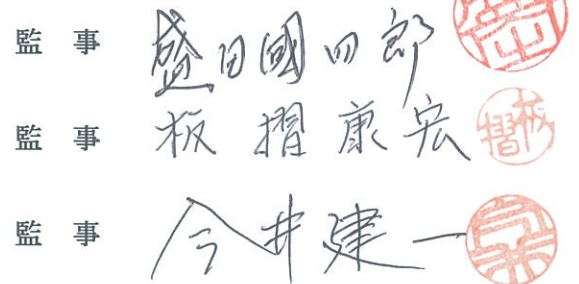 監事 盛田國四郎
監事 板摺康宏 板摺
監事 今井建一